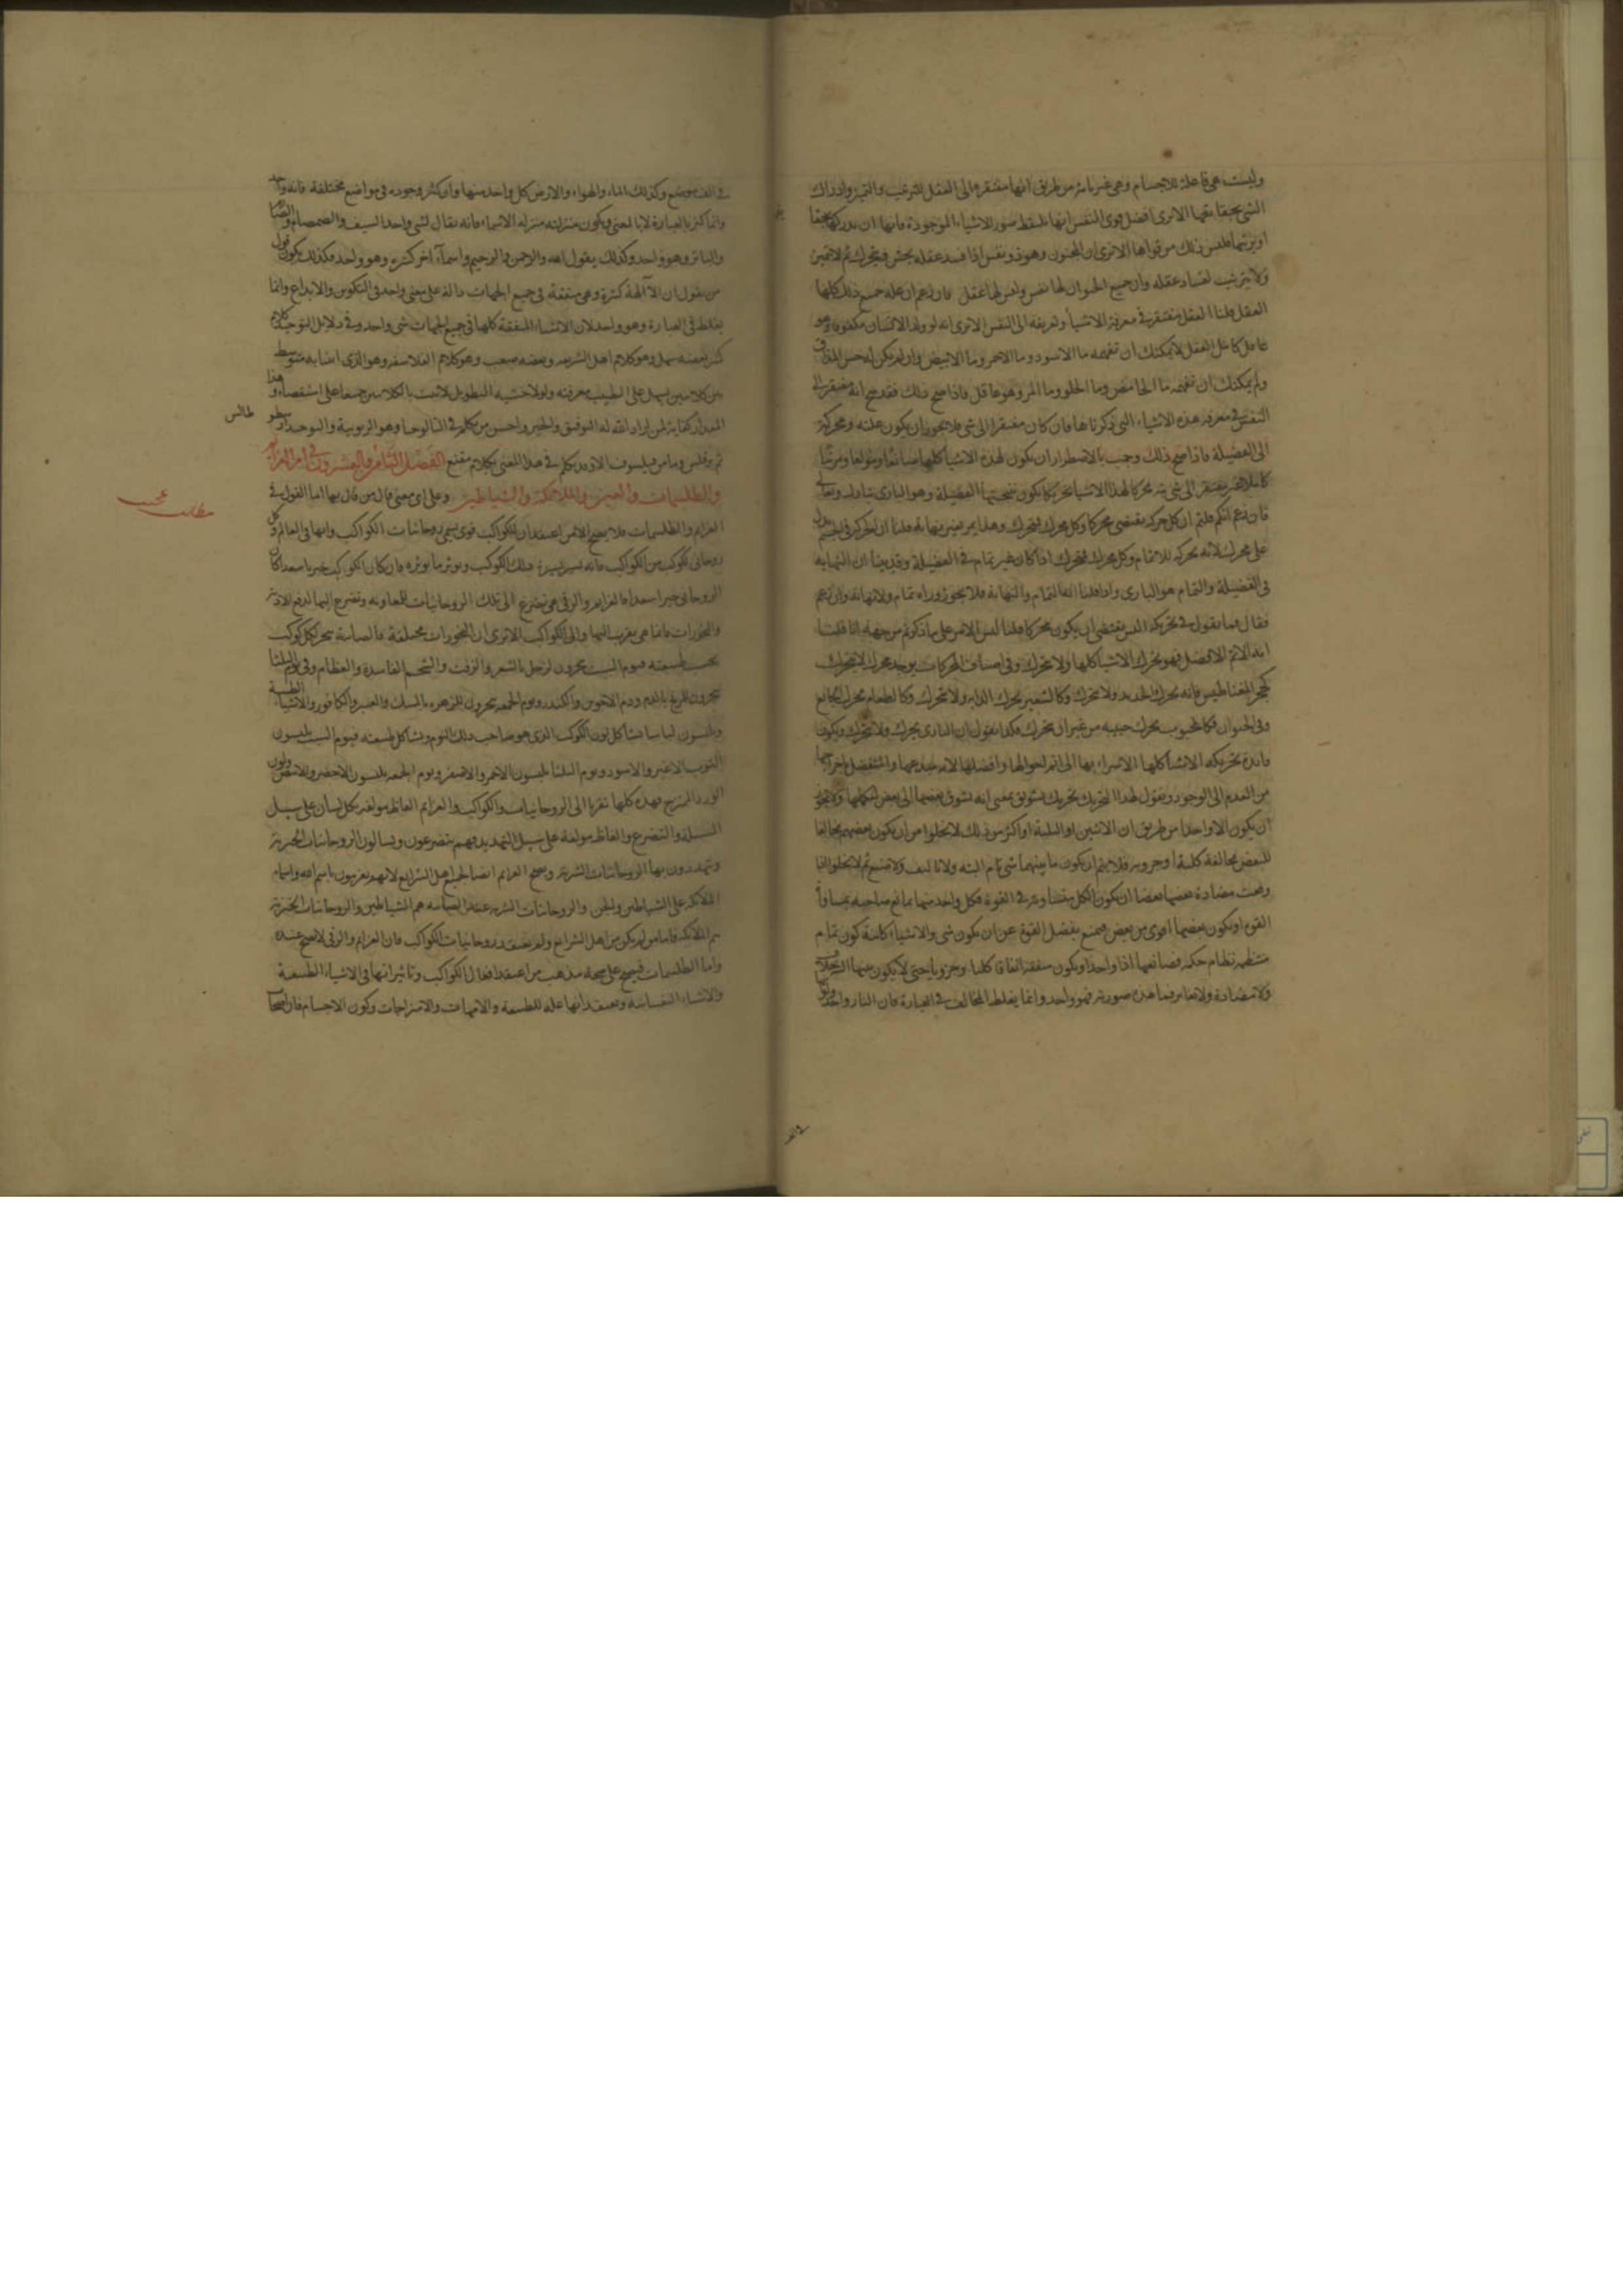 وليست هي فاعلة للاجسام وهي غير تامة من طريق انها مفتقرة الى العقل للترغيب والتمييز وادراك
الشي بحقايقها الا ترى افضل قوى النفس انها تلتقط صور الاشياء الموجودة فاما ان تدركها بحقا
او ترتبها فليس ذلك من قواها الا ترى ان المجنون وهو ذو نفس اذا فسد عقله يحس ويتحرك ثم لا يتميز
ولا يترتيب لفساد عقله وان جميع الحيوان لها نفس وليس لها عقل فان زعم ان علة جميع ذلك كلها
العقل قلنا العقل مفتقر في معرفة الاشيا وتعريفه الى النفس الا ترى انه لو ولد الانسان مكفوفا وهو
عاقل كامل العقل لا يمكنك ان تفهمه ما الاسود وما الاحمر وما الابيض وان لم يكن له حس المذاق
ولم يمكنك ان تفهمه ما الحامض وما الحلو وما المر وهو عاقل فاذا صح ذلك فقد صح انه مفتقر الى
النفس في معرفة هذه الاشياء التي ذكرناها فان كان مفتقرا الى شي فلا يجوز ان يكون علته ومحركة
الى الفضيلة فاذا صح ذلك وجب بالاضطرار ان يكون لهذه الاشيا كلها صانعا ومولفا ومرتبا
كاملا غير مفتقر الى شي ثم محركا لهذا الاشيا تحريكا يكون نتيجتها الفضيلة وهو الباري تبارك وتعالى
فان زعم انكم قلتم ان كل حركة يقتضي محركا وكل محرك متحرك وهذا يمر بغير نهاية قلنا ان
على محرك لانه تحركه للاتمام وكل محرك متحرك اذا كان غير تمام في الفضيلة وقد بينا ان النهاية
في الفضيلة والتمام هو الباري واذا قلنا انه التمام والنهاية فلا يجوز وراه تمام ولا نهاية وان زعم
فقال فما نقول في تحريكه اليس يقتضي ان يكون محركا قلنا ليس الامر على ما ذكرتم من جهة انا قلنا
انه الاتم الافضل فهو يحرك الاشيا كلها ولا يتحرك وفي اصناف المحركات يوجد محرك لا يتحرك
كحجر المغناطيس فانه يحرك الحديد ولا يتحرك وكالشعير يحرك الدابة ولا يتحرك وكالطعام يحرك الجايع
وفي الحيوان فكالمحبوب يحرك حبيبه من غير ان يتحرك فكذا نقول ان الباري يحرك ولا يتحرك ويكون
فايدة تحريكه الاشيا كلها الاسراء بها الى اتم احوالها وافضلها لانه مبدعها والمتفضل باخراجها
من العدم الى الوجود ونقول لهذا التحريك تحريك تشويق بمعنى انه تشوق بعضها الى بعض ولا يجوز
ان يكون الا واحدا من طريق ان الاثنين او الثلثة او اكثر من ذلك لا يخلوا من ان يكون بعضهم مخالفا
للبعض مخالفة كلية او جزوية فلا يتم ان يكون ما بينهما شي تام البتة ولا تاليف ولا صنع ثم لا يخلو اذا
وقعت مضادة بعضها بعضا ان يكون الكل في القوة فكل واحد منهما يمانع صاحبه
القوة او يكون بعضها اقوى من بعض فيمنع بفضل القوة عن ان يكون شي والاشياء كاينة كون تمام
منتظمة نظام حكمة فصانعها اذا واحد او يكون متفقة اتفاقا كليا وجزويا حتى لا يكون بينهما اختلاف
ولا مضادة ولا تغاير فما هذه صورته فهو واحد وانما يغلط المخالف في العبارة فان النار واحدة ولو
في الف
في الف موضع وكذلك الماء والهواء والارض كل واحد منها وان كثر وجوده في مواضع مختلفة فانه واحد
وانما كثر بالعبارة لا بالمعنى ويكون منزلته منزلة الاسماء فانه يقال لشي واحد السيف والصمصام والصارم
والباتر وهو واحد وكذلك يقول الله والرحمن والرحيم واسماء اخر كثيرة وهو واحد فكذلك يكون قول
من يقول ان الآلهة كثيرة وهي متفقة في جميع الجهات دالة على معنى واحد في التكوين والابداع وانما
يغلط في العبارة وهو واحد لان الاشياء المتفقة كلها في جميع الجهات شي واحد وفي دلايل التوحيد كلام
كثير بعضه سهل وهو كلام اهل الشريعة وبعضه صعب وهو كلام الفلاسفة وهو الذي اتينا به متوسط
بين كلامين يسهل على الطبيب معرفته ولولا خشية التطويل لاتيت بالكلامين جميعا على استقصاء وهذا
المقدار كفاية لمن اراد الله له التوفيق والخير واحسن من تكلم في الثالوجيا وهو الربوبية والتوحيد ارسطو
طالس
ثم وما من فيلسوف الا وقد تكلم في هذا المعنى بكلام مقنع الفصل الثامن والعشرون في امر العزايم
والطلسمات والجن والملائكة والشياطين وعلى اي معنى قال من قال بها اما القول في
مطلب عجيب
العزايم والطلسمات فلا يصح الا لمن اعتقد ان للكواكب قوى يسمى روحانيات الكواكب وانها في العالم وكل
روحاني لكوكب من الكواكب فانه يسير بسيرة ذلك الكوكب ويوثر ما يوثره فان كان الكوكب خيرا سعدا كان
الروحاني خيرا سعدا فالعزايم والرقى هي تضرع الى تلك الروحانيات للمعاونة وتضرع اليها لدفع الاذية
والبخورات فانما هي تقرب اليها والى الكواكب الا ترى ان البخورات مختلفة فالصابئة تبخر لكل كوكب
بحسب طبيعته فيوم السبت يبخرون لزحل بالشعر والزفت والشحم الفاسدة والعظام وفي يوم الثلثا
يبخرون للمريخ بالدم ودم الاخوين والكندر ويوم الجمعة يبخرون للزهرة بالمسك والعنبر والكافور والاشيا الطيبة
ويلبسون لباسا يشاكل لون الكوكب الذي هو صاحب ذلك اليوم ويشاكل طبيعته فيوم السبت يلبسون
الثوب الاغبر والاسود ويوم الثلثا يلبسون الاحمر والاصفر ويوم الجمعة يلبسون الاخضر والابيض ولون
الورد الممتزج فهذه كلها تقربا الى الروحانيات والكواكب والعزايم الفاظ مولفة بكل لسان على سبيل
المسئلة والتضرع والفاظ مولفة على سبيل التهديد فهم يتضرعون ويسالون الروحانيات الخيرية
ويتهددون بها الروحانيات الشرية ويصح العزايم ايضا لجميع اهل الشرايع لانهم يعزمون باسم الله واسماء
الملائكة على الشياطين والجن والروحانيات الشرية عند الصابئة هم الشياطين والروحانيات الخيرية
هم الملائكة فاما من لم يكن من اهل الشرايع ولم يعتقد روحانيات الكواكب فان العزايم والرقى لا تصح عنده
واما الطلسمات فيصح على صحة مذهب من اعتقد افعال الكواكب وتاثيراتها في الاشياء الطبيعية
والاشياء النفسانية ويعتقد انها علة للطبيعة والامهات والامتزاجات وكون الاجسام فان اصحا